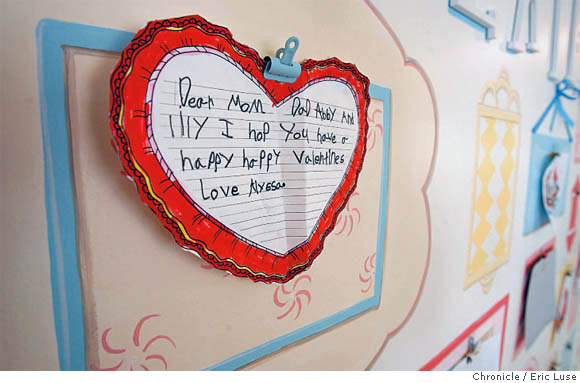 Dear Mom Dad Abby And
Illy I hop you have a
happy happy Valentines
Love Nyssa
Chronicle / Eric Luse